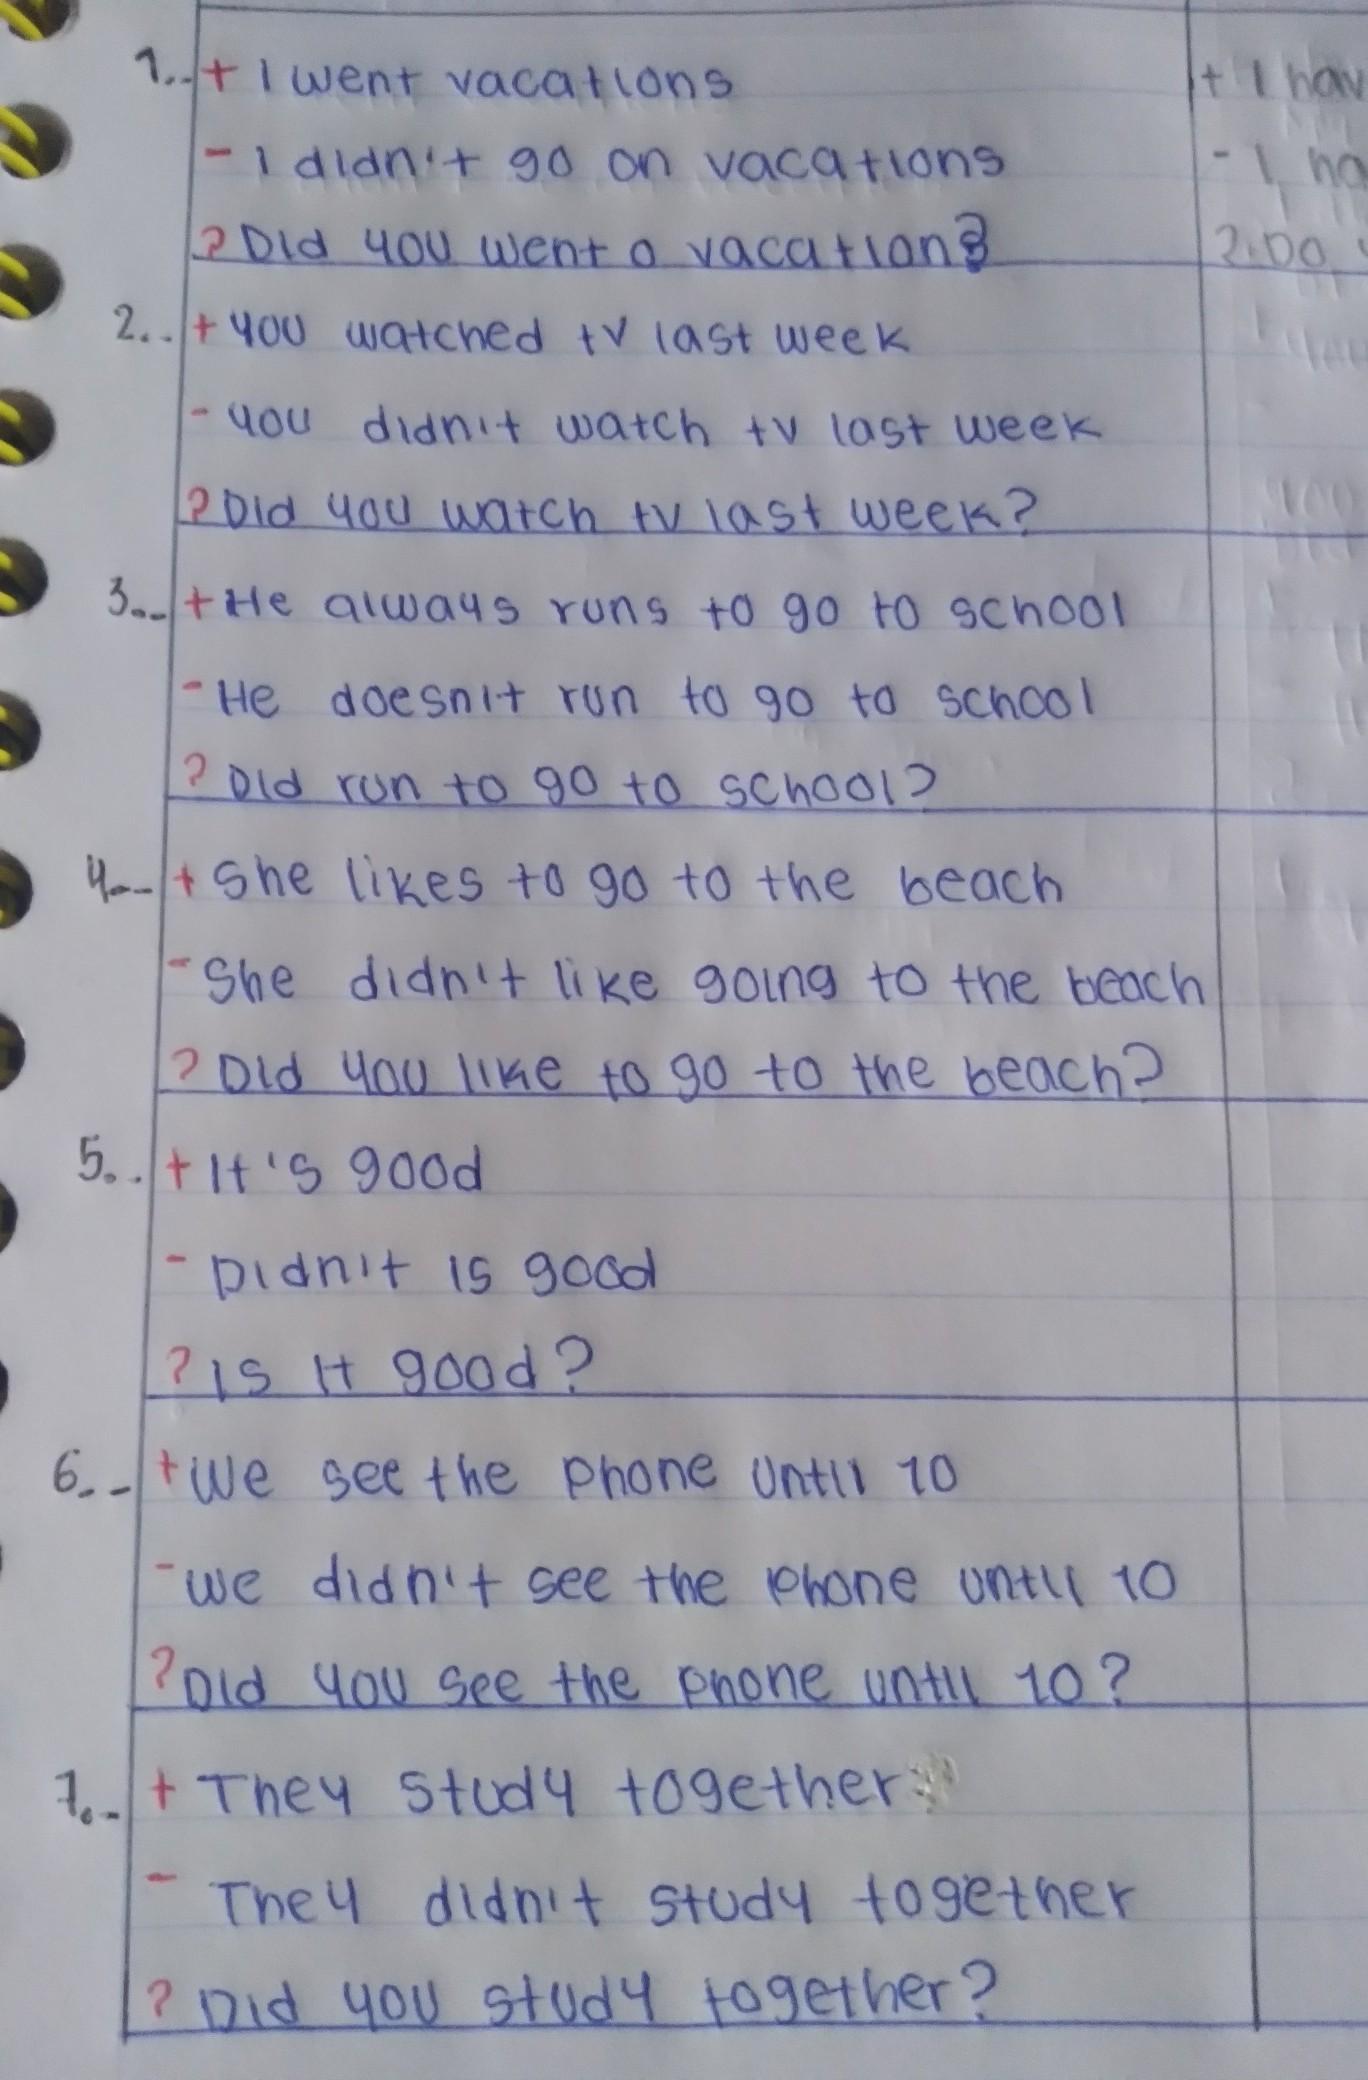 1.. + I went vacations
- I didn't go on vacations
? Did you went a vacation?
2.. + you watched tv last week
- you didn't watch tv last week
? Did you watch tv last week?
3.. + He always runs to go to school
- He doesn't run to go to school
? Did run to go to school?
4.. + She likes to go to the beach
- She didn't like going to the beach
? Did you like to go to the beach?
5.. + It's good
- Didn't is good
? Is it good?
6.. + We see the phone until 10
- we didn't see the phone until 10
? Did you see the phone until 10?
7.. + They study together
- They didn't study together
? Did you study together?
+ I
- I